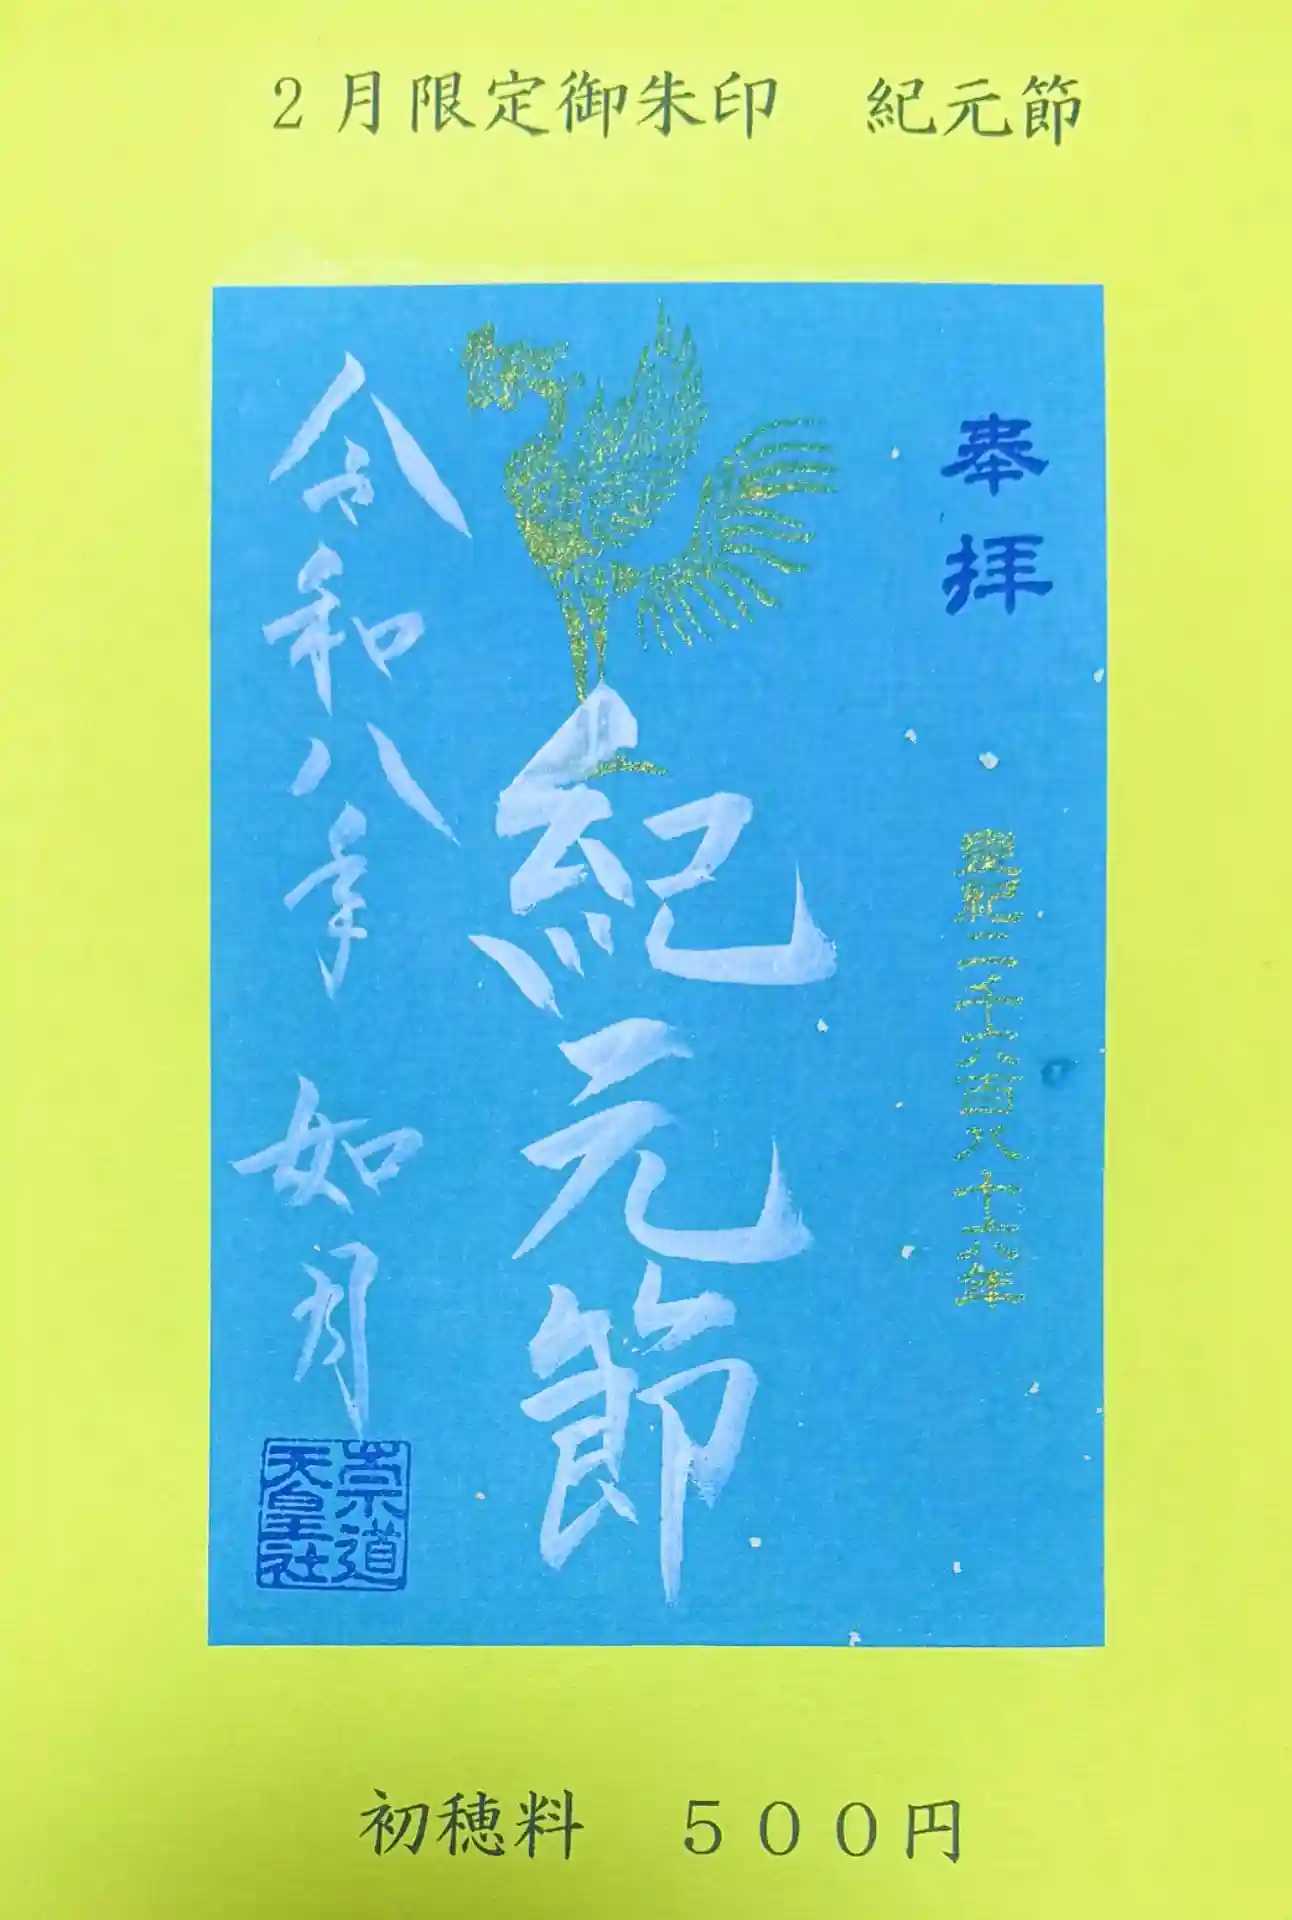 2月限定御朱印　紀元節
奉拝
皇紀二千六百八十六年
紀元節
令和八年　如月
崇道
天皇社
初穂料　500円